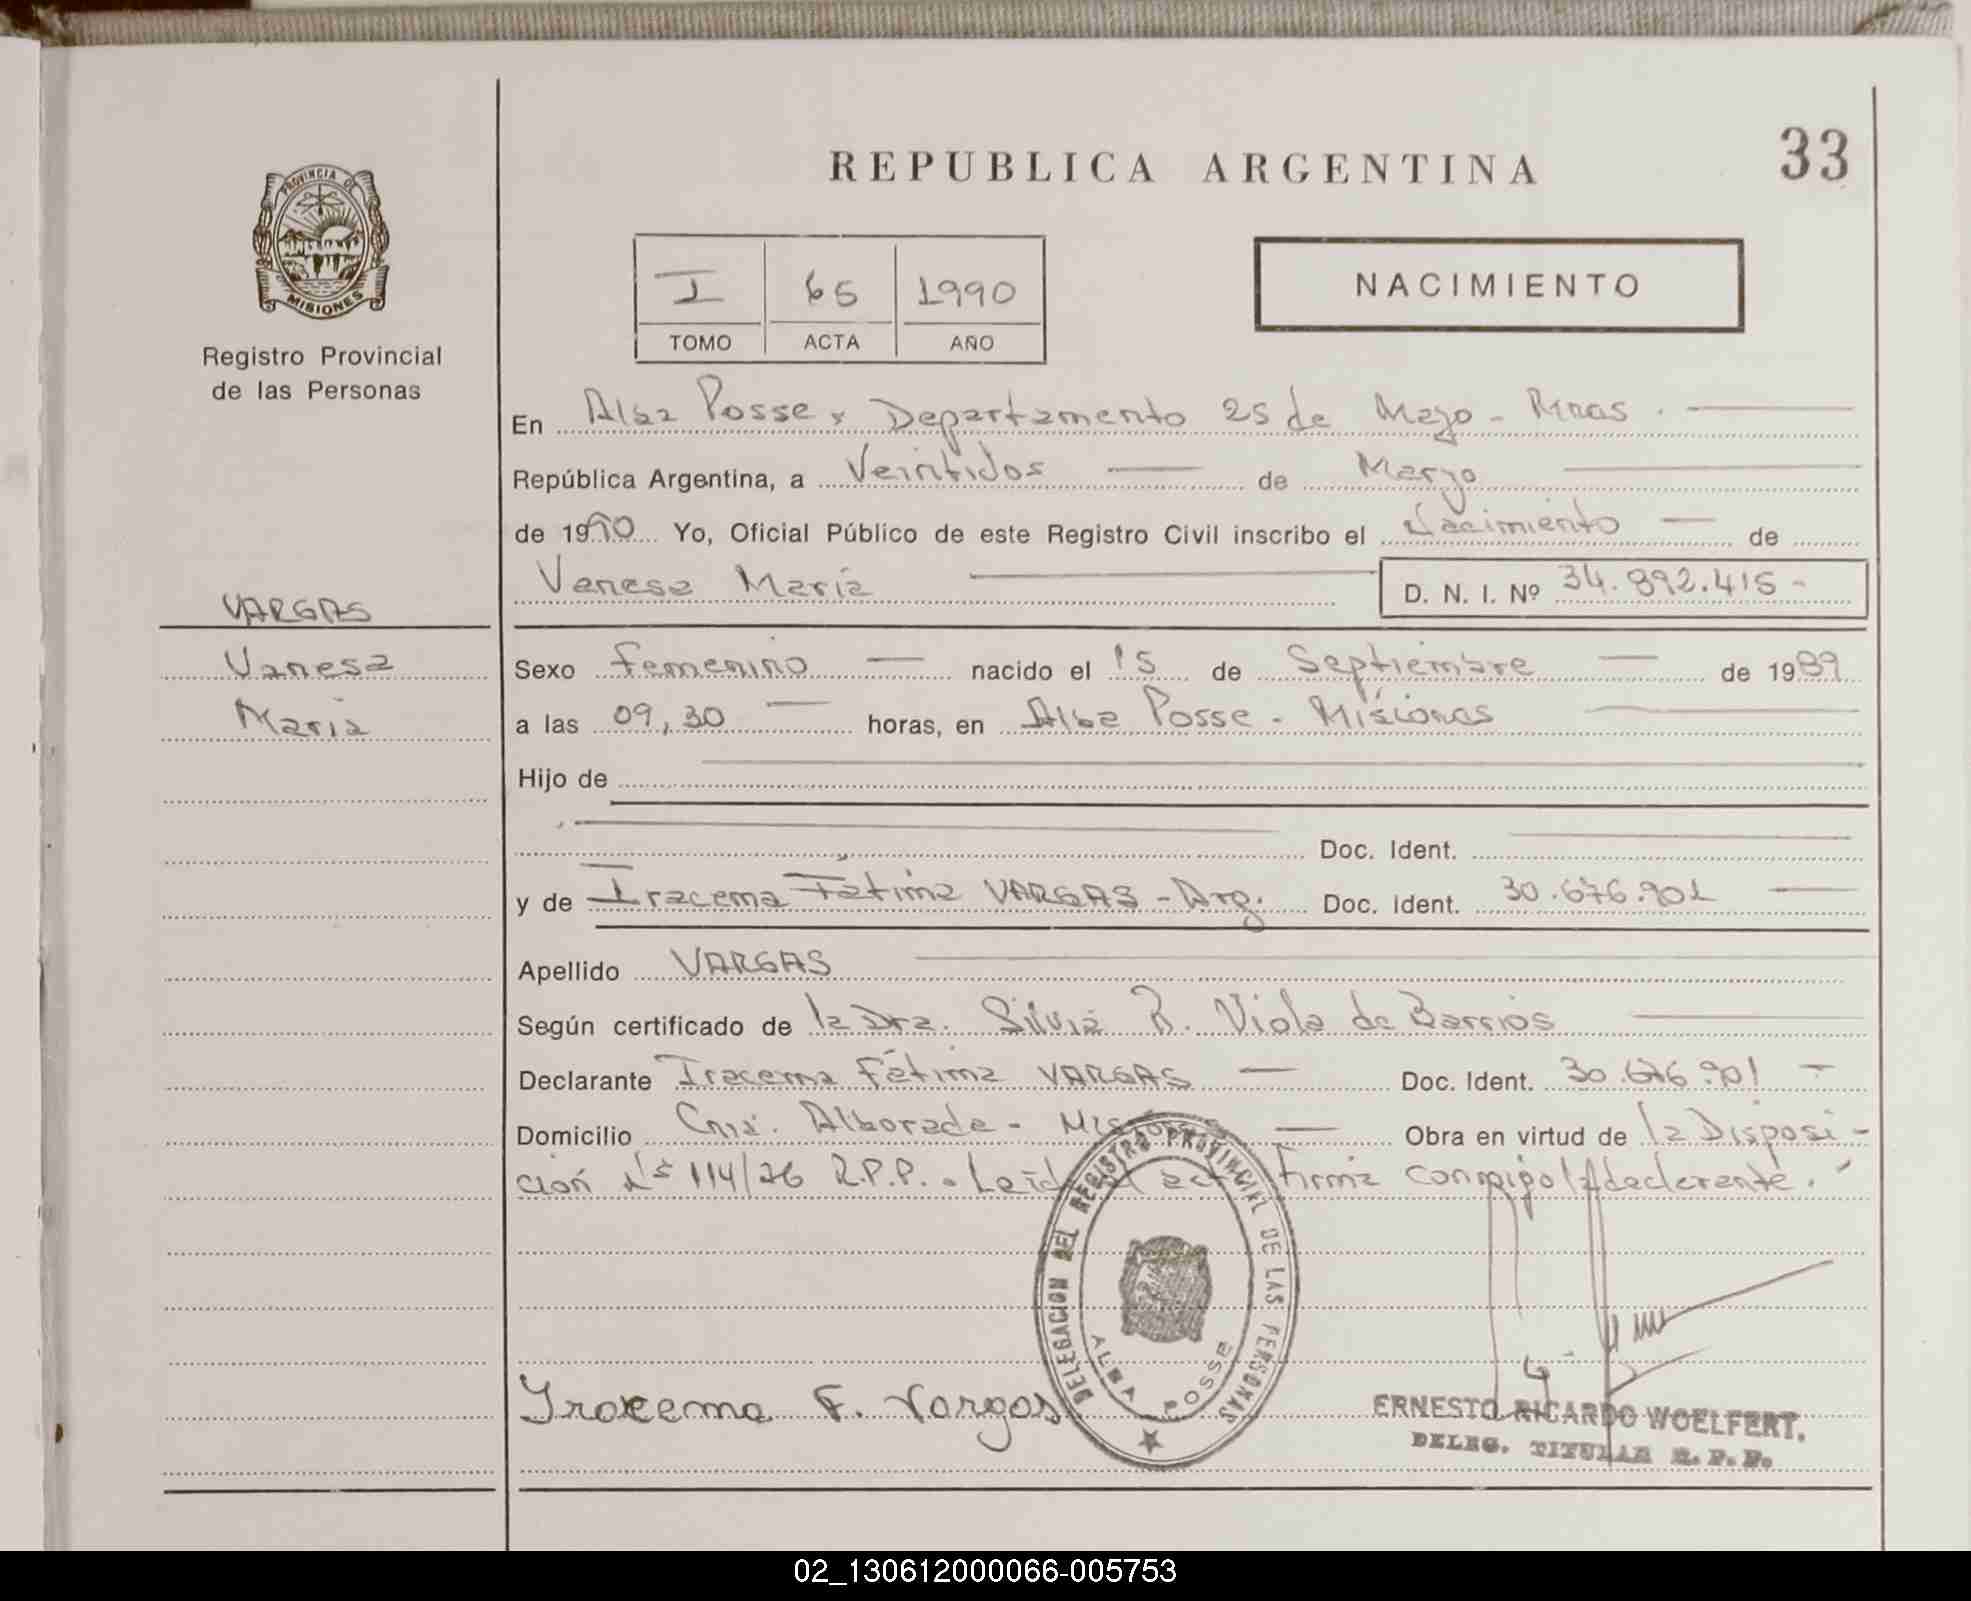 REPUBLICA ARGENTINA
33
PROVINCIA DE
MISIONES
Registro Provincial
de las Personas
I 65 1990
TOMO ACTA AÑO
NACIMIENTO
En Alba Posse, Departamento 25 de Mayo - Mnes.
República Argentina, a Veintidos de Marzo
de 1990 Yo, Oficial Público de este Registro Civil inscribo el Nacimiento de
Vanesa María D. N. I. Nº 34.892.415-
VARGAS
Vanesa
María
Sexo Femenino nacido el 15 de Septiembre de 1989
a las 09,30 horas, en Alba Posse - Misiones
Hijo de
Doc. Ident.
y de Iracema Fátima VARGAS - Arg. Doc. Ident. 30.676.901
Apellido VARGAS
Según certificado de la Dra. Silvia R. Viola de Barrios
Declarante Iracema Fátima VARGAS Doc. Ident. 30.676.901
Domicilio Cnia. Alborada - Misiones Obra en virtud de la Disposi-
ción Nº 114/76 R.P.P. Leíd acta Firma conmigo la declarante.
DELEGACION DEL REGISTRO PROVINCIAL DE LAS PERSONAS
ALBA POSSE
Iracema F. Vargas
ERNESTO RICARDO WOELFERT.
DELEG. TITULAR R. P. P.
02_130612000066-005753